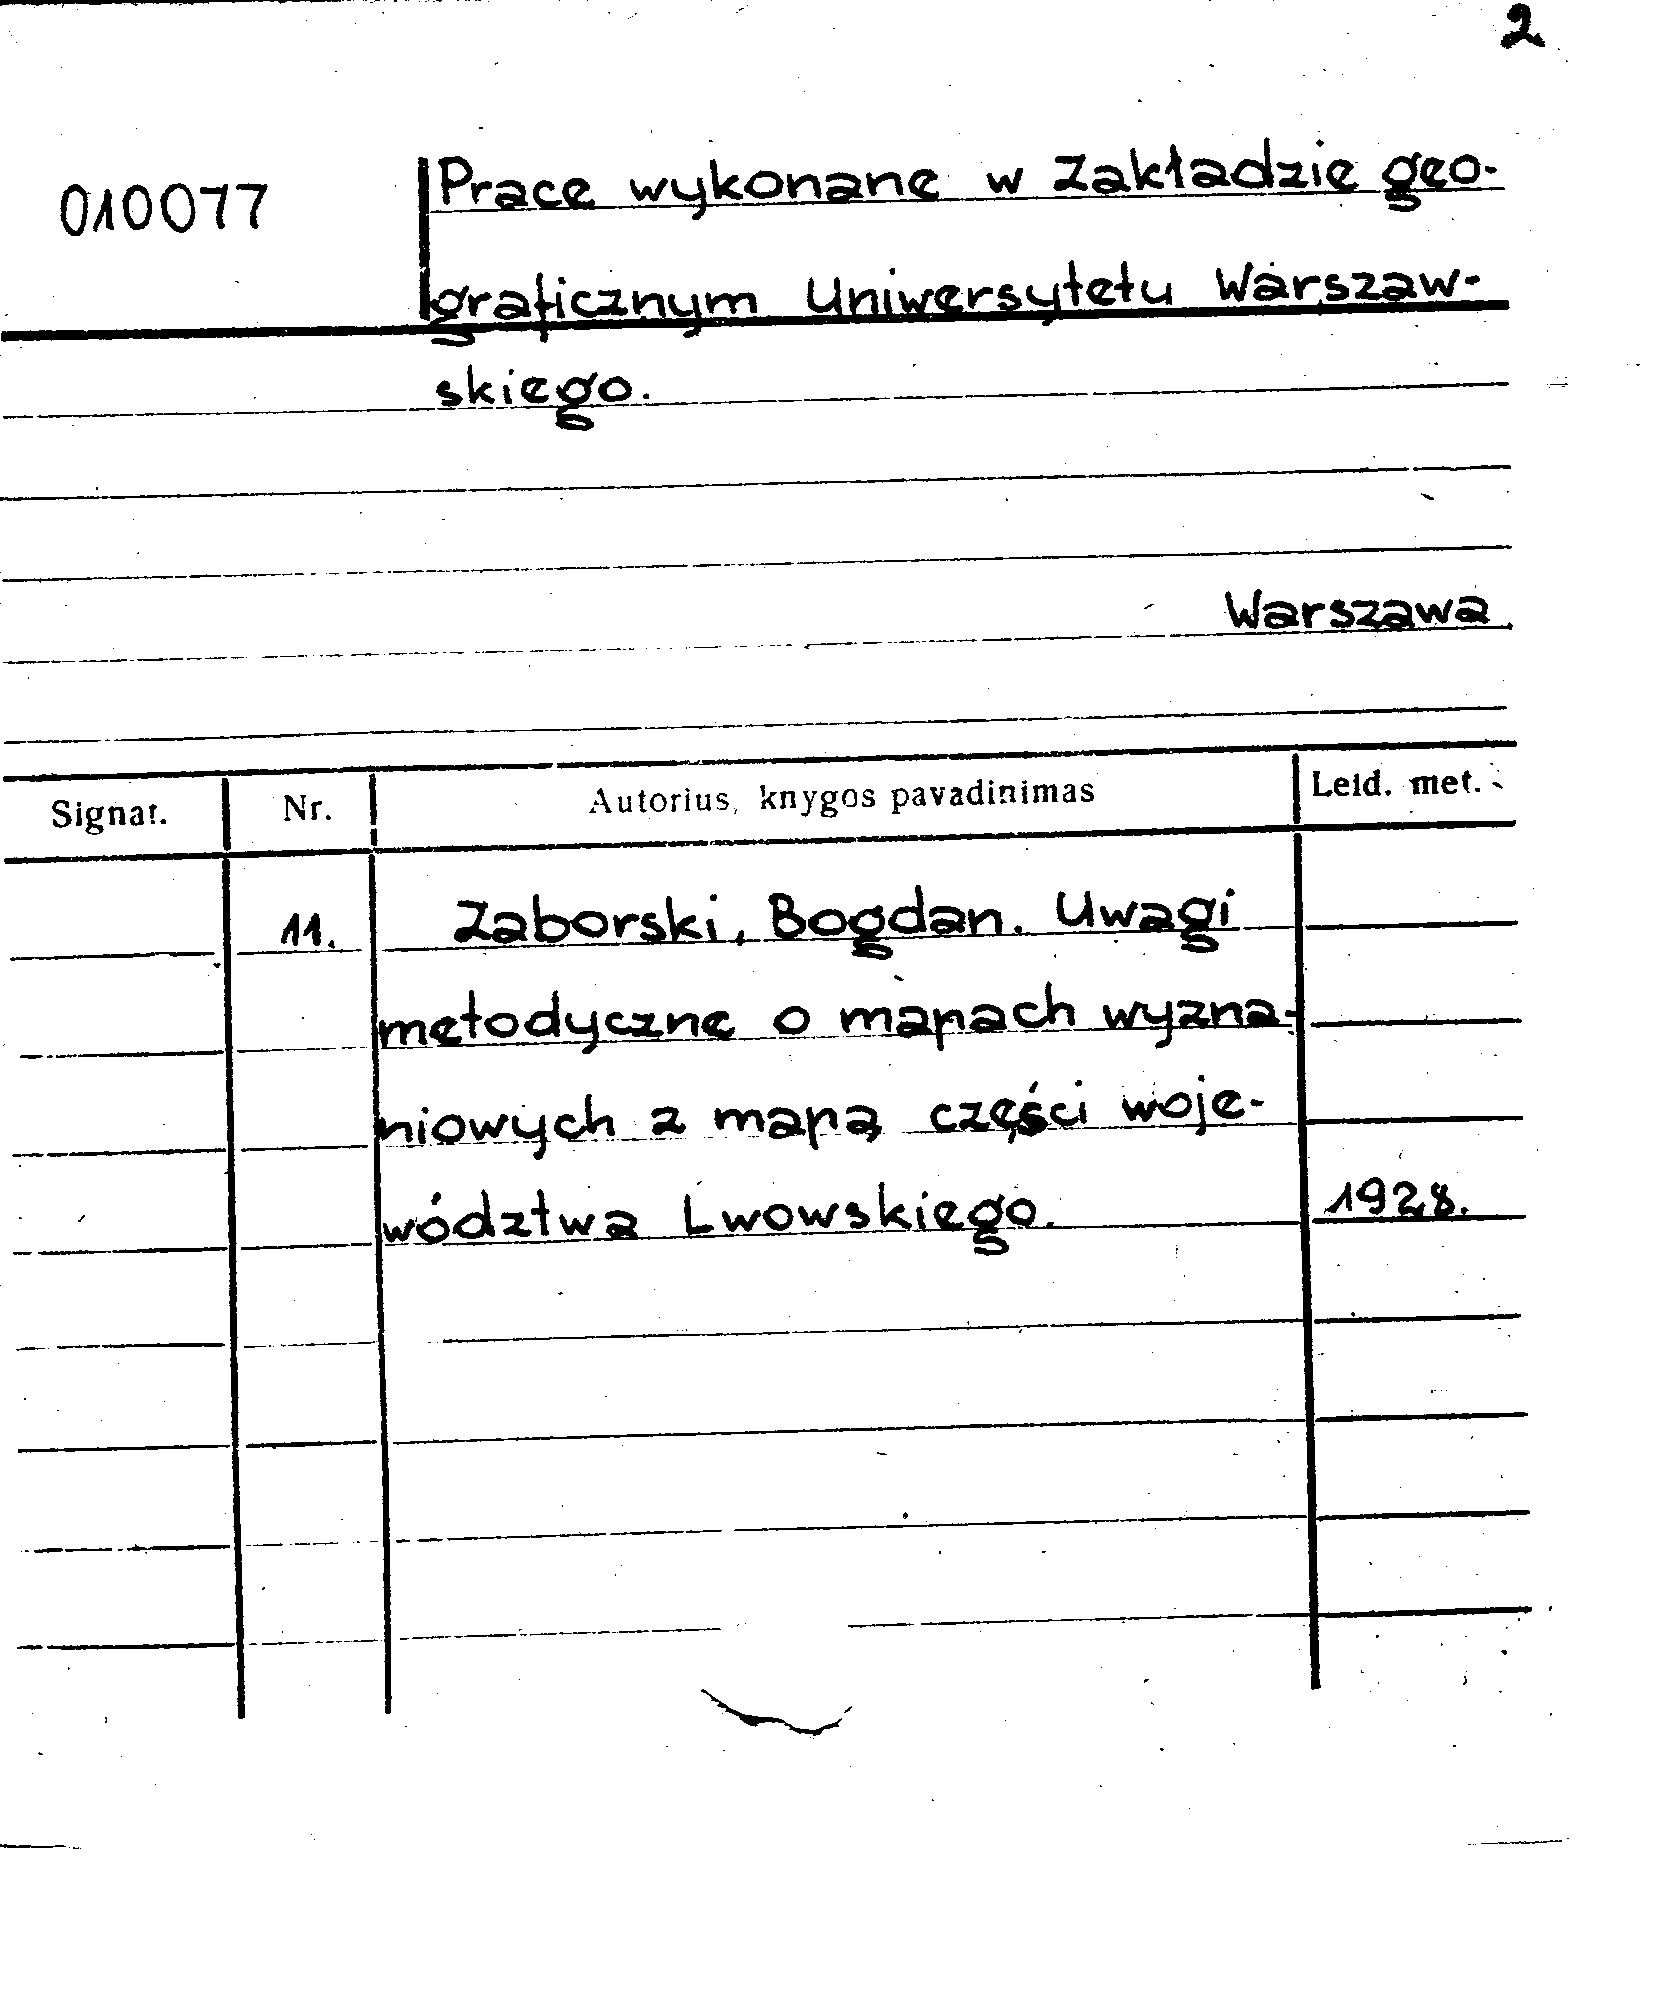 2
010077
Prace wykonane w Zakładzie geo-
graficznym Uniwersytetu Warszaw-
skiego.
Warszawa.
Signat. Nr. Autorius, knygos pavadinimas Leid. met.
11. Zaborski, Bogdan. Uwagi
metodyczne o mapach wyzna-
niowych z mapą części woje-
wództwa Lwowskiego. 1928.